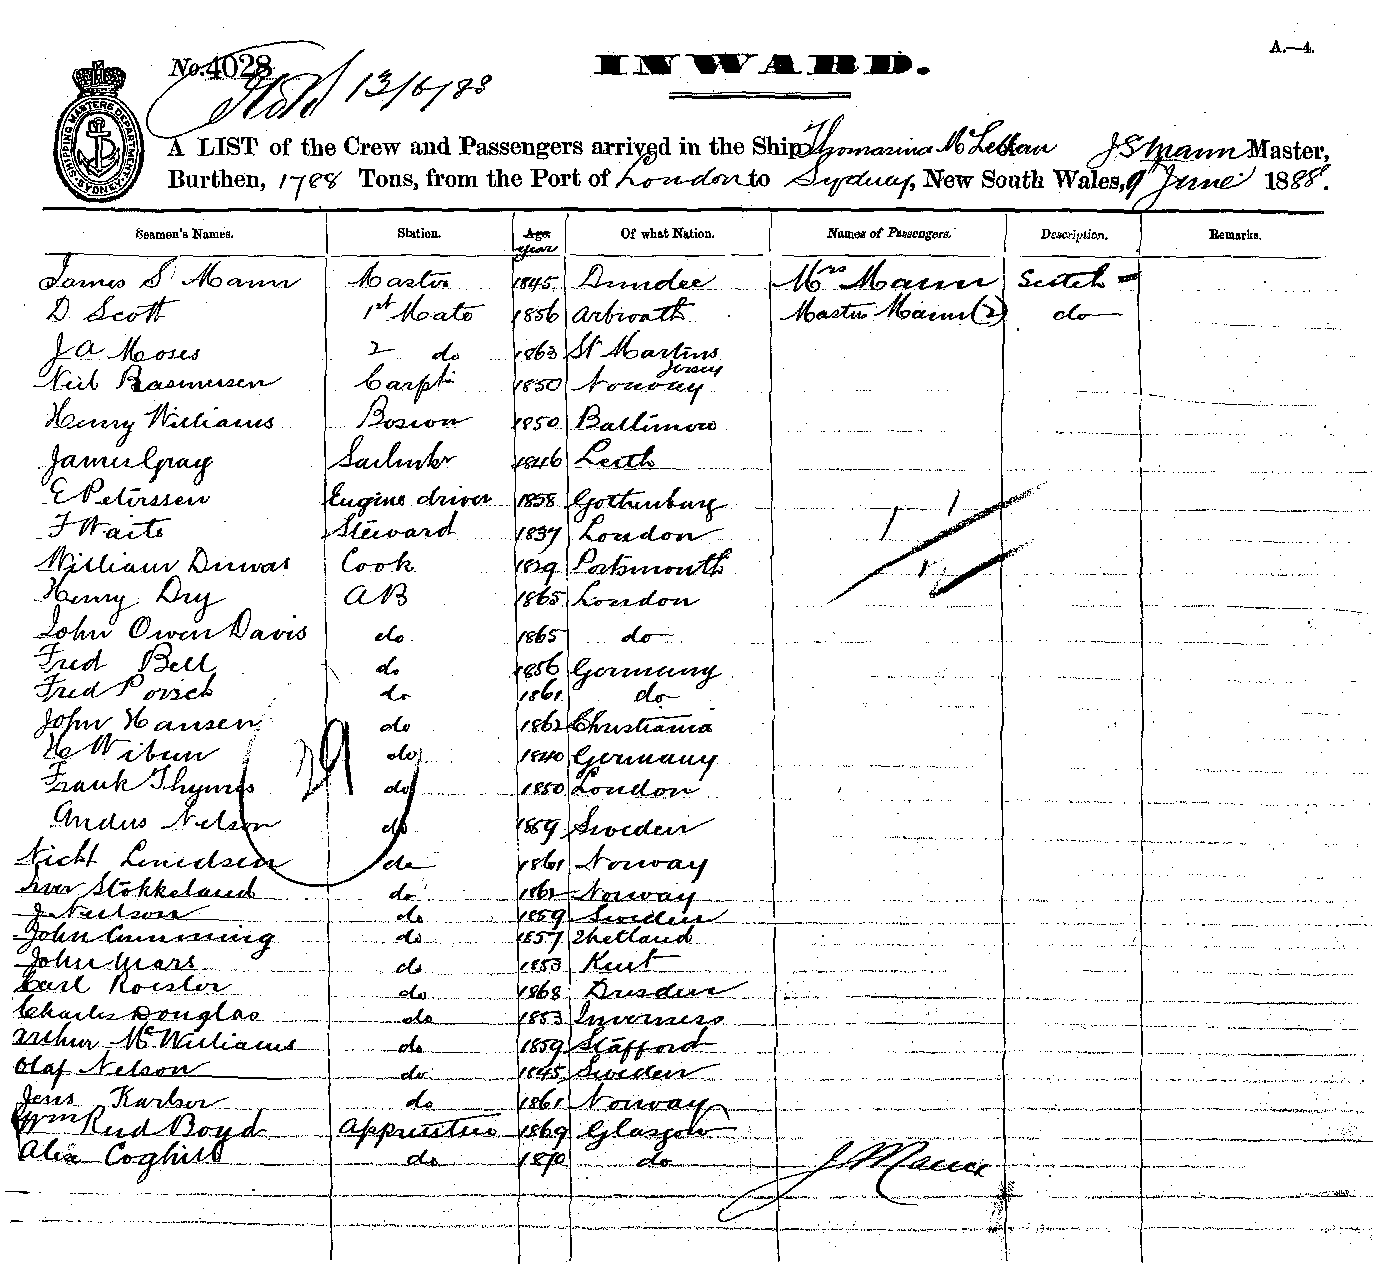 A.—4.
No. 4028
13/6/88
INWARD.
SHIPPING MASTERS DEPARTMENT SYDNEY
A LIST of the Crew and Passengers arrived in the Ship Thomasina McLellan J S Mann Master,
Burthen, 1788 Tons, from the Port of London to Sydney, New South Wales, 9th June 1888.
Seamen's Names. Station. Age. Of what Nation. Names of Passengers. Description. Remarks.
year
James S Mann Master 1845 Dundee Mrs Mann Scotch
D Scott 1st Mate 1856 Arbroath Master Mann (2) do
J A Moses 2 do 1863 St Martins
Jersey
Neil Rasmussen Carptr 1850 Norway
Henry Williams Boswn 1850 Baltimore
James Gray Sailmkr 1846 Leith
E Peterssen Engine driver 1858 Gothenburg
F Waite Steward 1837 London
William Cook 1829 Portsmouth
Henry Dry AB 1865 London
John Owen Davis do 1865 do
Fred Bell do 1856 Germany
Fred do 1861 do
John Hansen do 1862 Christiania
H do 1840 Germany
Frank Thymes do 1850 London
29
Andus Nelson do 1859 Sweden
do 1861 Norway
Iver Stokkeland do 1862 Norway
J Neilson do 1859 Sweden
John Cumming do 1857 Shetland
John Mars do 1853 Kent
Carl Roesler do 1868 Dresden
Charles Douglas do 1853 Inverness
Arthur McWilliams do 1859 Stafford
Olaf Nelson do 1845 Sweden
Jens Karlsen do 1861 Norway
Wm Reid Boyd Apprentice 1869 Glasgow
Alix Coghill do 1870 do
J S Mann